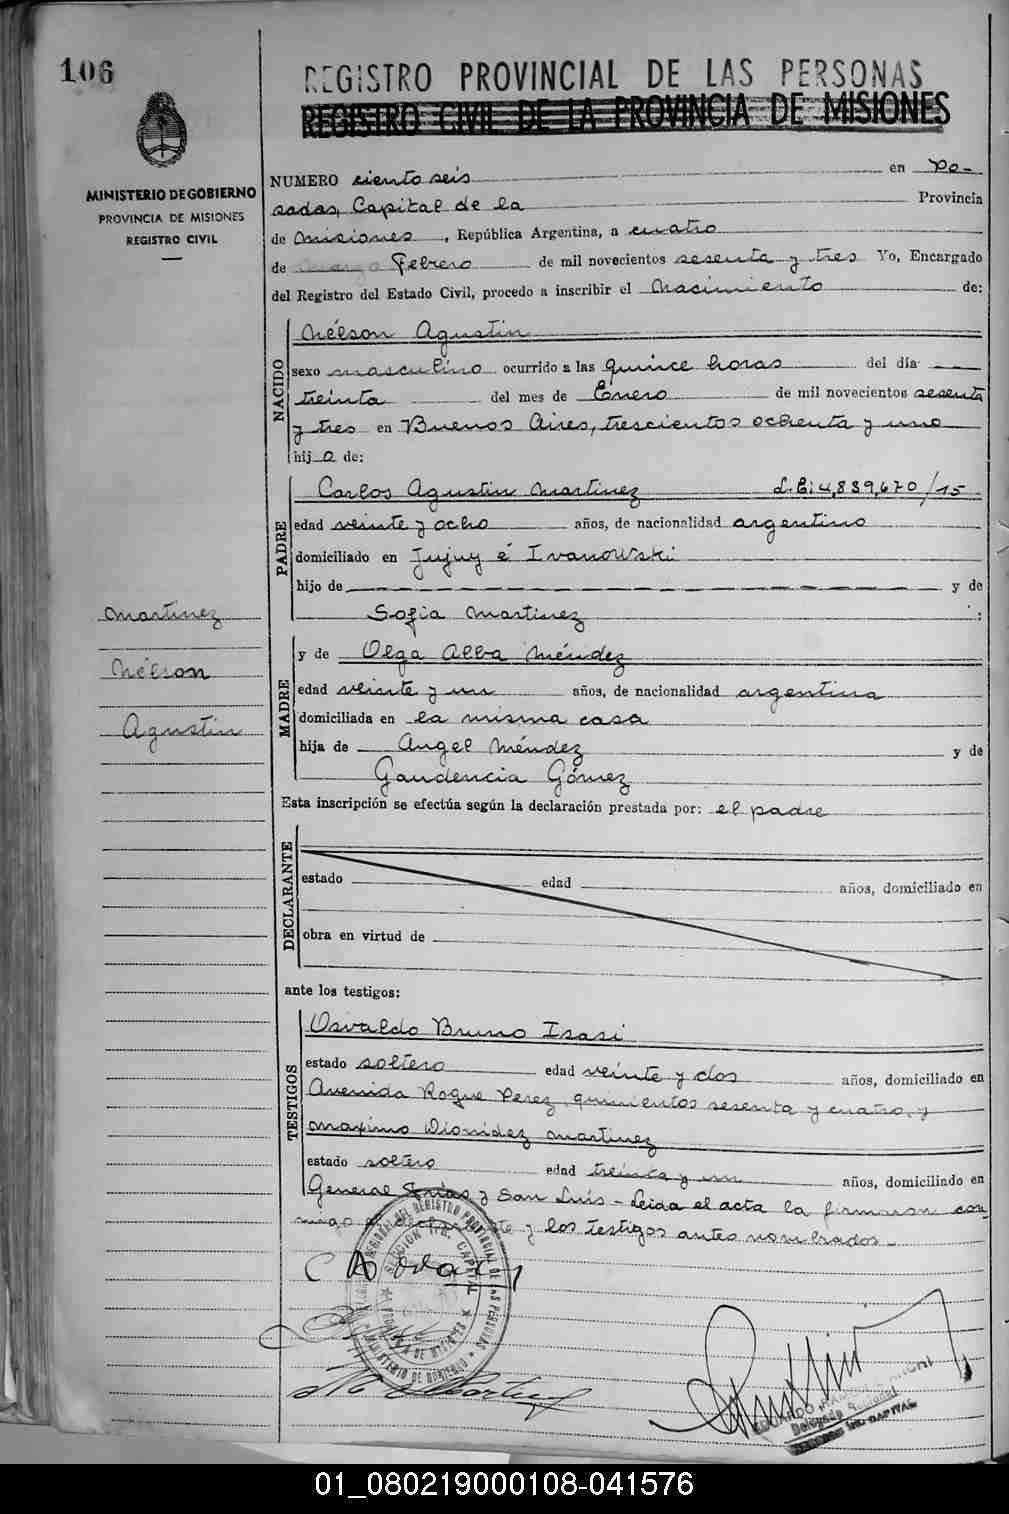 106
REGISTRO PROVINCIAL DE LAS PERSONAS
REGISTRO CIVIL DE LA PROVINCIA DE MISIONES
MINISTERIO DE GOBIERNO
PROVINCIA DE MISIONES
REGISTRO CIVIL
NUMERO ciento seis en Po-
sadas, Capital de la Provincia
de Misiones, República Argentina, a cuatro
de Marzo Febrero de mil novecientos sesenta y tres Yo, Encargado
del Registro del Estado Civil, procedo a inscribir el Nacimiento de:
NACIDO
Nélson Agustin
sexo masculino ocurrido a las quince horas del día
treinta del mes de Enero de mil novecientos sesenta
y tres en Buenos Aires, trescientos ochenta y uno
hijo de:
PADRE
Carlos Agustin Martinez L.E: 4,839,670/15
edad veinte y ocho años, de nacionalidad argentino
domiciliado en Jujuy é Ivanowski
hijo de y de
Sofia Martinez :
Martinez
Nélson
Agustin
MADRE
y de Olga Alba Méndez
edad veinte y un años, de nacionalidad argentina
domiciliada en la misma casa
hija de Angel Méndez y de
Gaudencia Gómez
Esta inscripción se efectúa según la declaración prestada por: el padre
DECLARANTE
estado edad años, domiciliado en
obra en virtud de
ante los testigos:
TESTIGOS
Osvaldo Bruno Isasi
estado soltero edad veinte y dos años, domiciliado en
Avenida Roque Perez, quinientos sesenta y cuatro, y
Maximo Dionidez Martinez
estado soltero edad treinta y un años, domiciliado en
General Frías y San Luís - Leida el acta la firmaron con-
migo el declarante y los testigos antes nombrados.-
01_080219000108-041576